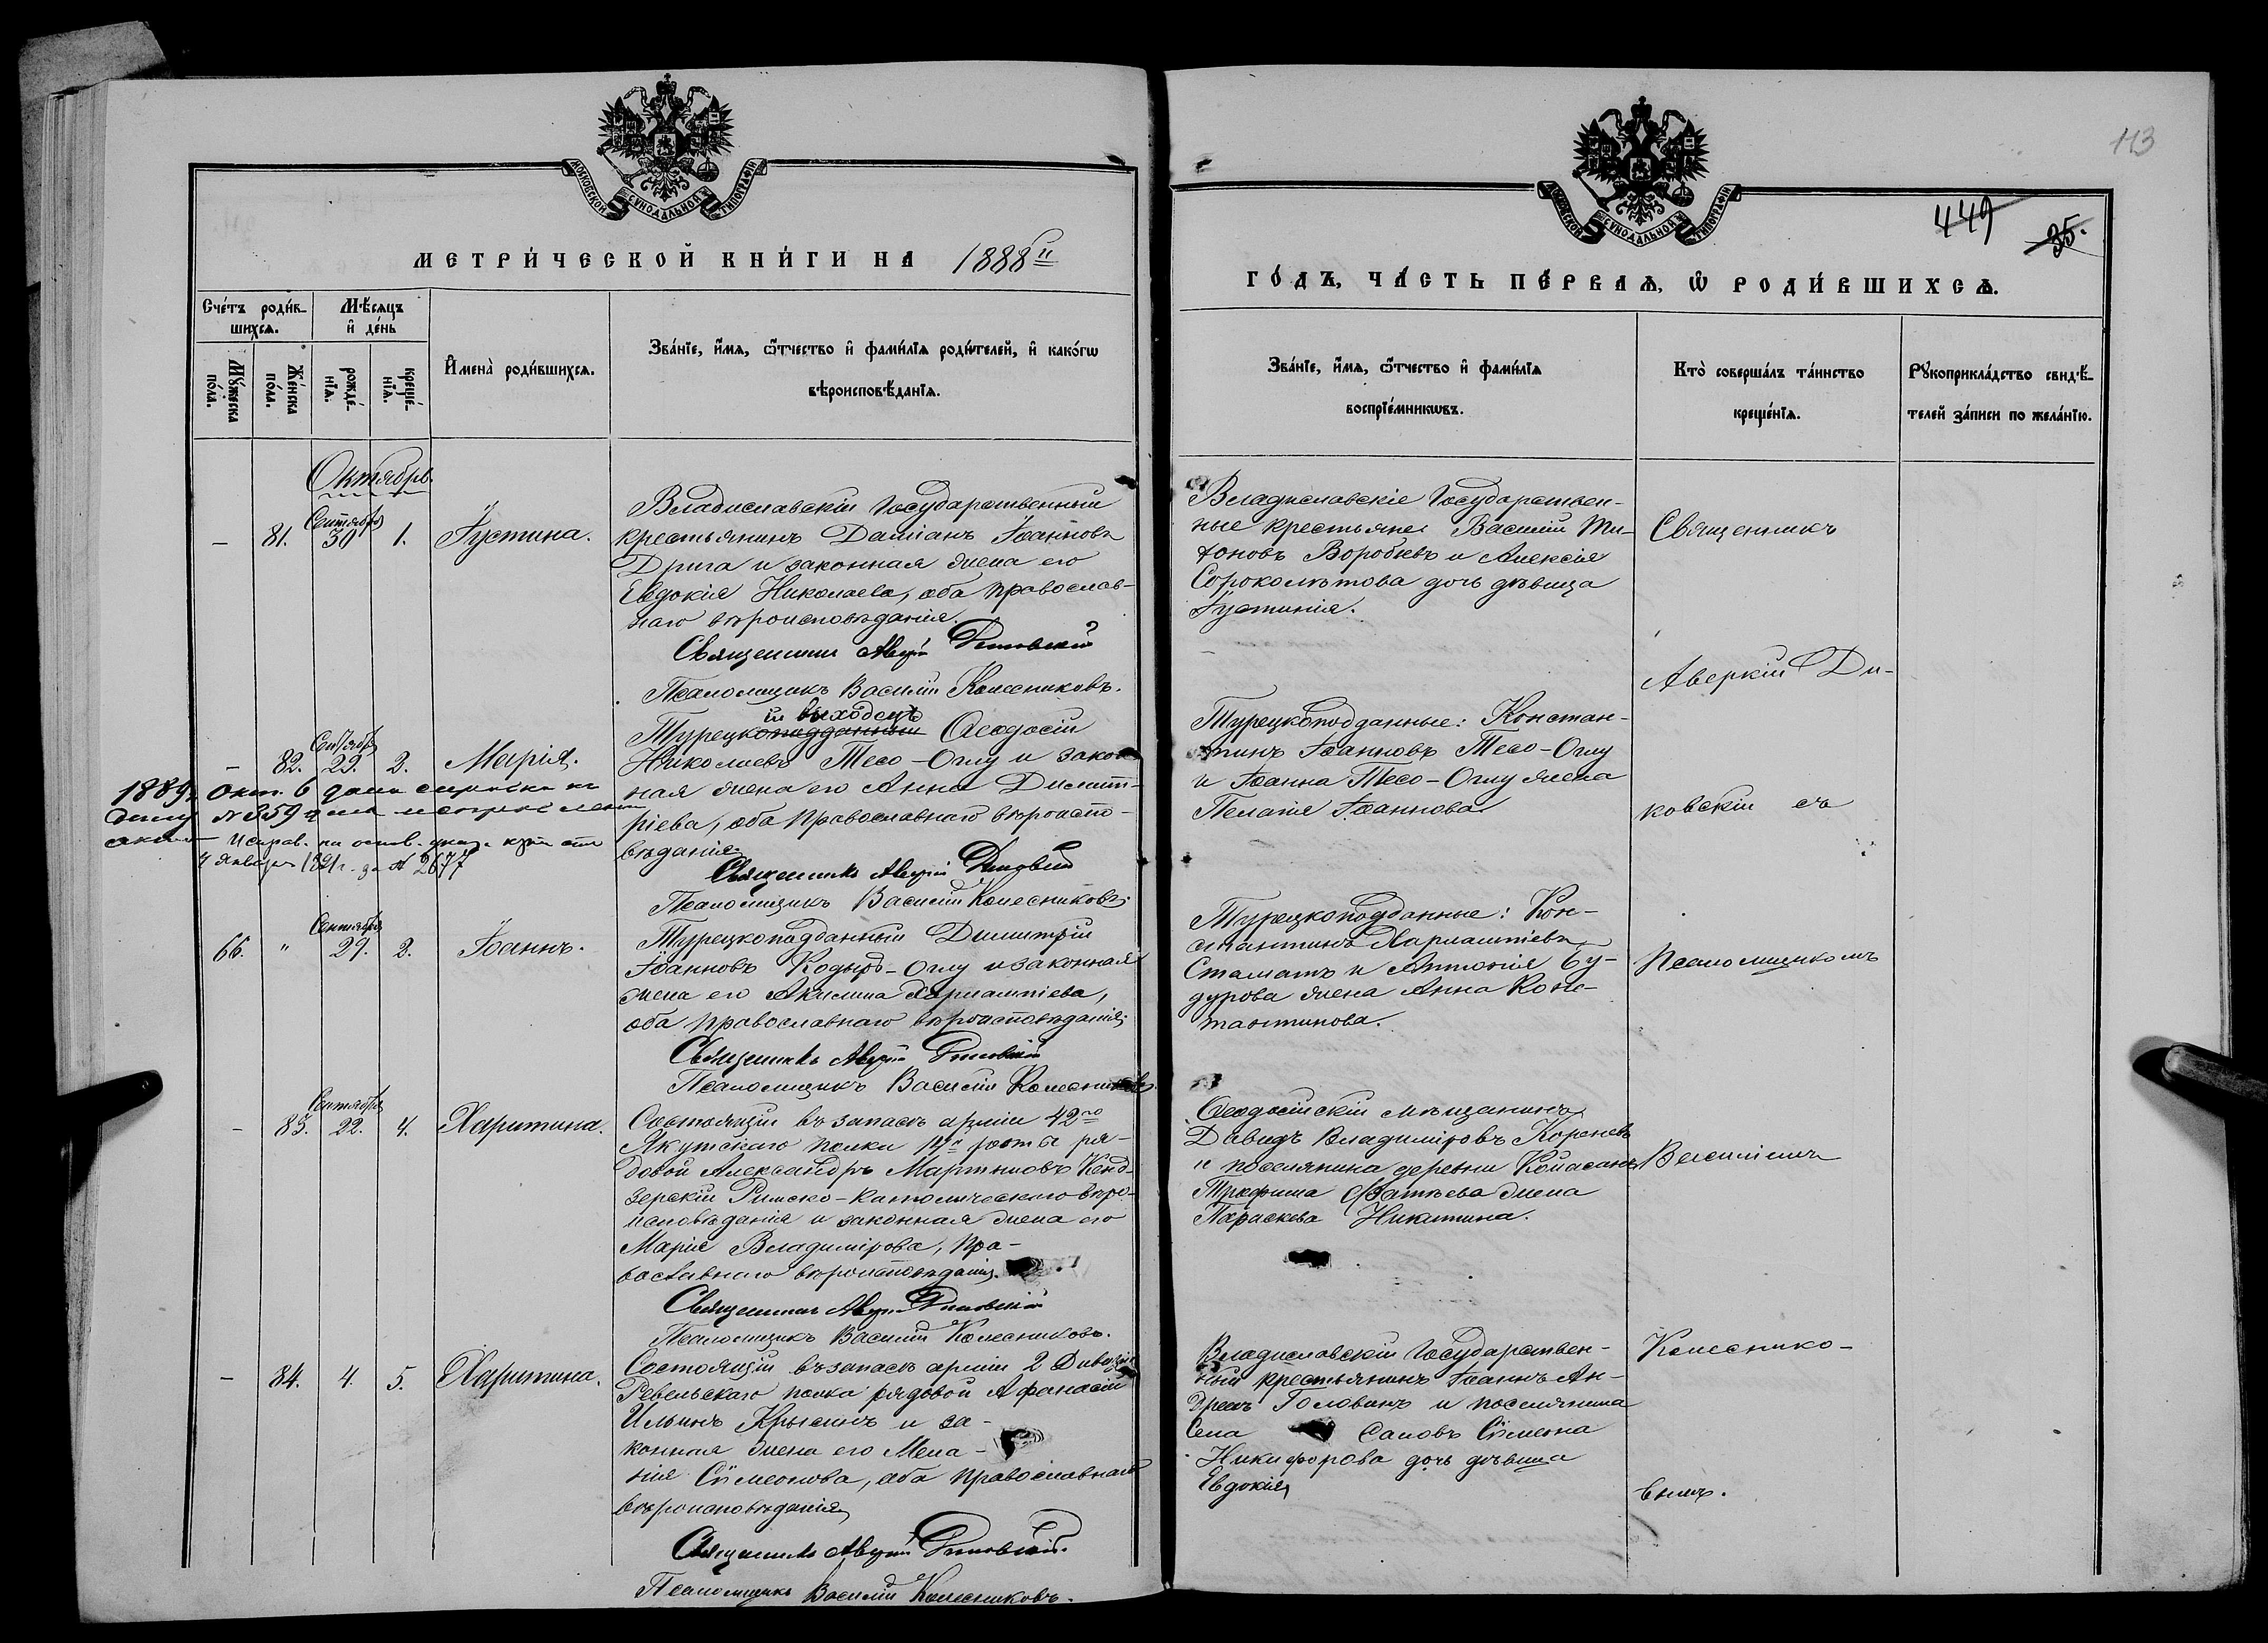 МОСКОВСКОЙ СУНОДАЛЬНОЙ ТИПОГРАФІИ
МЕТРИ́ЧЕСКОЙ КНИ́ГИ НА 1888й
Сче́тъ роди́в-
шихсѧ.
Мꙋ́жеска
по́ла.
Же́нска
по́ла.
Мѣ́сѧцъ
и҆ де́нь
рожде́-
нїѧ.
креще́-
нїѧ.
И҆мена̀ роди́вшихсѧ.
Зва́нїе, и҆́мѧ, ѻ҆́тчество и҆ фами́лїѧ роди́телей, и҆ како́гѡ
вѣроисповѣ́данїѧ.
Октябрь.
Сентября
– 81. 30 1. Іустина.
Владиславскій Государственный
крестьянинъ Даміанъ Іоанновъ
Дрига и законная жена его
Евдокія Николаева, оба православ-
наго вѣроисповѣданія.
Священникъ Аверкій Диковскій
Псаломщикъ Василій Колесниковъ.
Сентября
– 82. 29. 2. Марія.
ій выходецъ
Турецкоподданный Ѳеодосій
Николаевъ Тесо-Оглу и закон-
ная жена его Анна Димит-
ріева, оба православнаго вѣроиспо-
вѣданія.
Священникъ Аверкій Диковскій
Псаломщикъ Василій Колесниковъ.
1889 г. Окт. 6 дана
№ 359
Исправ. на основ. указа
4 Января 1891 г. за № 2677
Сентября
66. " 29. 2. Іоаннъ.
Турецкоподданный Димитрій
Іоанновъ Кодыръ-Оглу и законная
жена его Акилина Харлампіева,
оба православнаго вѣроисповѣданія.
Священникъ Аверкій Диковскій
Псаломщикъ Василій Колесниковъ.
Сентября
– 83. 22. 4. Харитина.
Состоящій въ запасѣ арміи 42го
Якутскаго полка 12й роты ря-
довой Александръ Мартиновъ Кенд-
зерскій Римско-Католическаго вѣро-
исповѣданія и законная жена его
Марія Владимірова, пра-
вославнаго вѣроисповѣданія.
Священникъ Аверкій Диковскій
Псаломщикъ Василій Колесниковъ.
– 84. 4. 5. Харитина.
Состоящій въ запасѣ арміи 2 Дивизіи
Ревельскаго полка рядовой Афанасій
Ильинъ Крысинъ и за-
конная жена его Мела-
нія Сѵмеонова, оба православнаго
вѣроисповѣданія
Священникъ Аверкій Диковскій.
Псаломщикъ Василій Колесниковъ.
113
449 35.
МОСКОВСКОЙ СУНОДАЛЬНОЙ ТИПОГРАФІИ
ГО́ДЪ, ЧА́СТЬ ПЕ́РВАѦ, Ѡ҆ РОДИ́ВШИХСѦ.
Зва́нїе, и҆́мѧ, ѻ҆́тчество и҆ фами́лїѧ
воспрїе́мникѡвъ.
Кто̀ соверша́лъ та́инство
креще́нїѧ.
Рꙋкоприкла́дство свидѣ́-
телей за́писи по жела́нїю.
Владиславскіе Государствен-
ные крестьяне Василій Ти-
хоновъ Воробьевъ и Алексія
Сороколѣтова дочь дѣвица
Іустинія.
Турецкоподданные: Констан-
тинъ Іоанновъ Тесо-Оглу
и Іоанна Тесо-Оглу жена
Пелагія Іоаннова
Турецкоподданные: Кон-
стантинъ Харлампіевъ
Стаматъ и Антонія Бу-
дурова жена Анна Конс-
тантинова.
Ѳеодосійскій мѣщанинъ
Давидъ Владиміровъ Кореневъ
и поселянина деревни
Трифина Фатѣева жена
Параскева Никитина.
Владиславскій Государствен-
ный крестьянинъ Іоаннъ Ан-
дреевъ Голованъ и поселянина
Села Саловъ Сѵмеона
Никифорова дочь дѣвица
Евдокія
Священникъ
Аверкій Ди-
ковскій съ
Псаломщикомъ
Василіемъ
Колеснико-
вымъ.